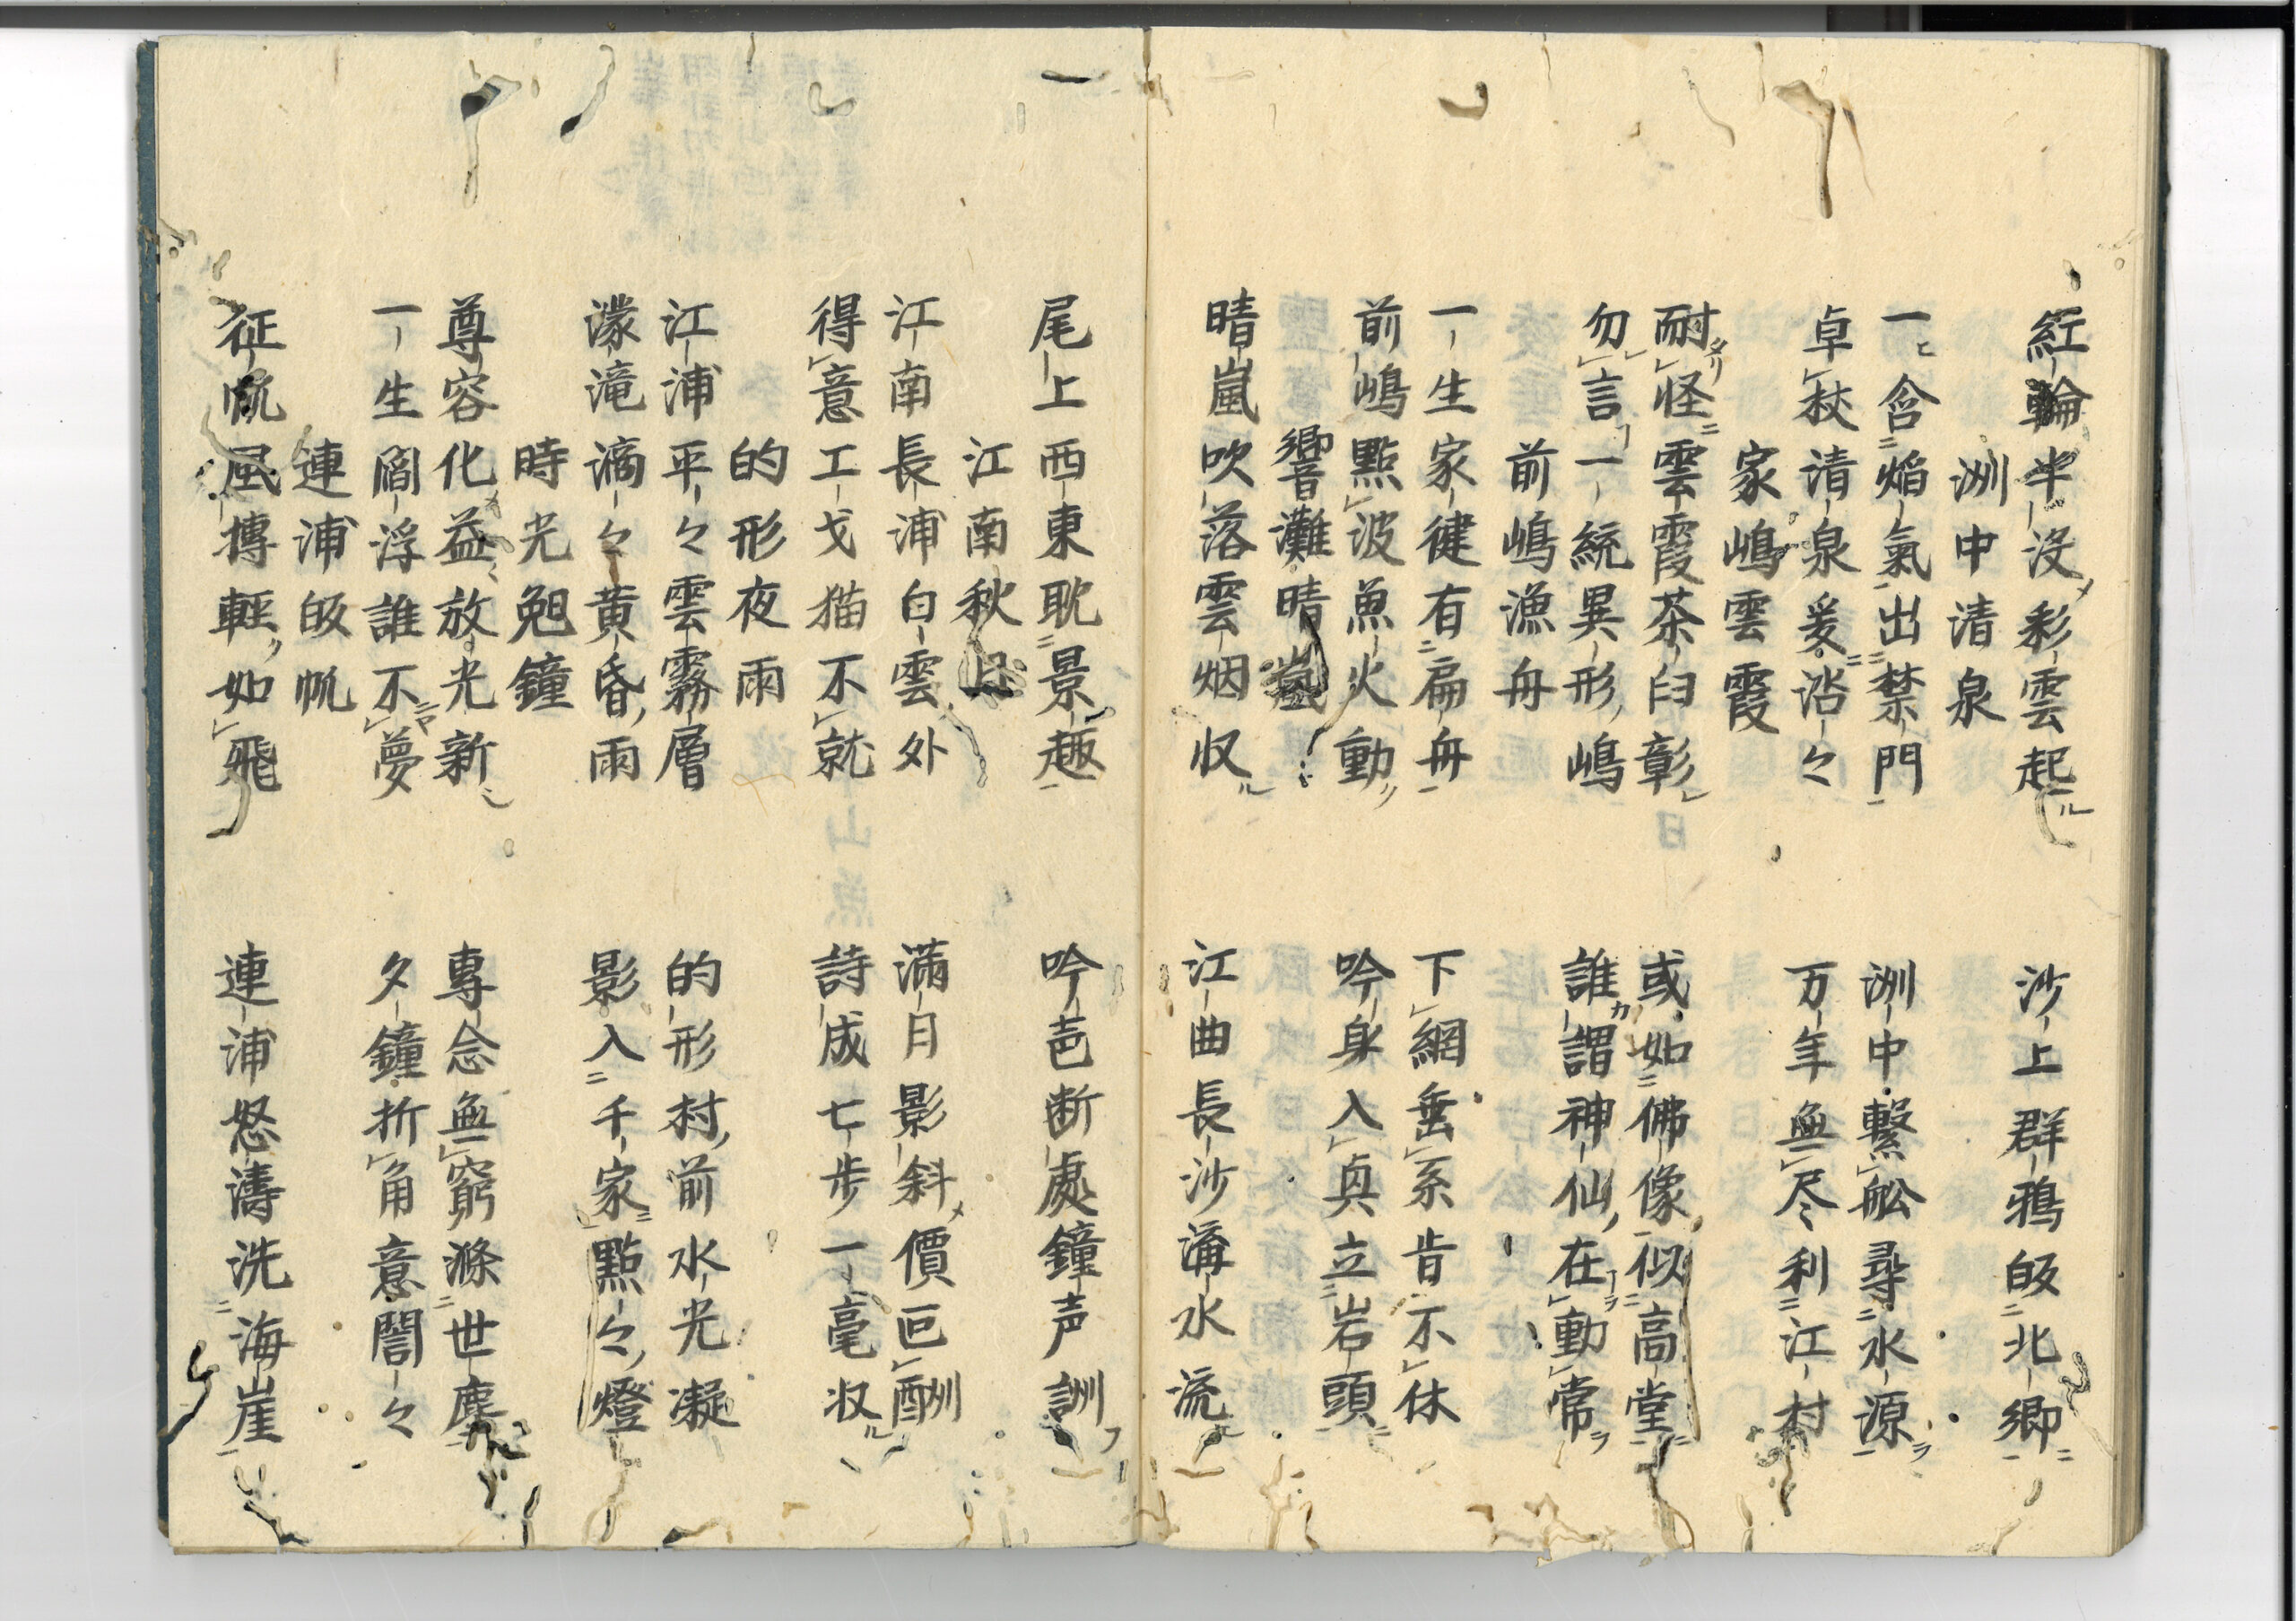 紅輪半没彩雲起 沙上群鴉皈北郷
洲中清泉
一含焔氣出禁門 洲中繋舩尋水源
卓杖清泉爰沿々 万年無尽利江村
家嶋雲霞
耐怪雲霞茶臼彰 或如佛像似高堂
勿言一統異形嶋 誰謂神仙在動常
前嶋漁舟
一生家徤有扁舟 下網垂系肯不休
前嶋點波魚火動 吟身入真立岩頭
響灘晴嵐
晴嵐吹落雲烟収 江曲長沙溝水流
尾上西東耽景趣 吟芭断處鐘声訓
江南秋月
江南長浦白雲外 満日影斜價叵酬
得意工戈猫不就 詩成七歩一毫収
的形夜雨
江浦平々雲霧層 的形村前水光凝
濛滝滴々黄昏雨 影入千家點々燈
時光勉鐘
尊容化益放光新 專念無窮滌世塵
一生閻浮誰不夢 夕鐘折角意誾々
連浦皈帆
征帆風摶輕如飛 連浦怒濤洗海崖